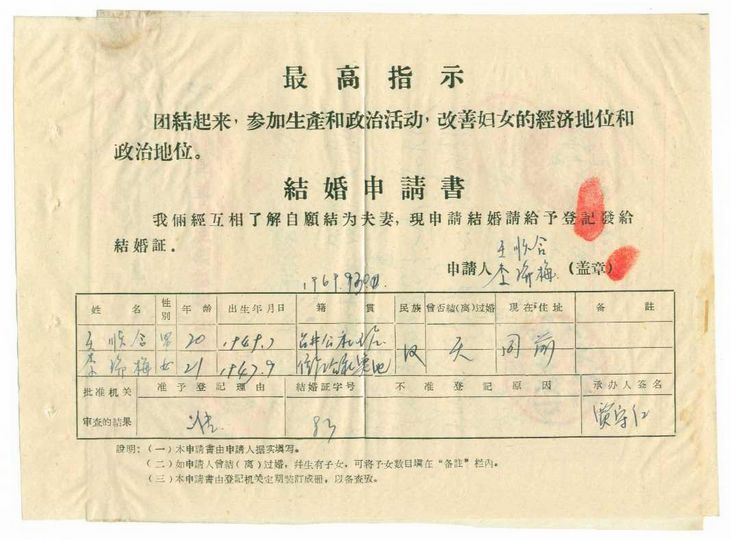 最高指示
团結起来，参加生產和政治活动，改善妇女的經济地位和
政治地位。
結婚申請書
我俩經互相了解自願結为夫妻，現申請結婚請給予登記發給
結婚証。
王順合
申請人 李 梅 (盖章)
姓名 性別 年齡 出生年月日 籍貫 民族 曾否結(离)过婚 現在住址 备註
王順合 男 20 1949.7 汉 无 同前
李 梅 女 21
批准机关 准予登記理由 結婚証字号 不准登記原因 承办人签名
审查的結果 83 贾守仁
說明：(一)本申請書由申請人据实填写。
(二)如申請人曾結(离)过婚，幷生有子女，可将子女数目填在“备註”栏內。
(三)本申請書由登記机关定期装訂成册，以备查攷。